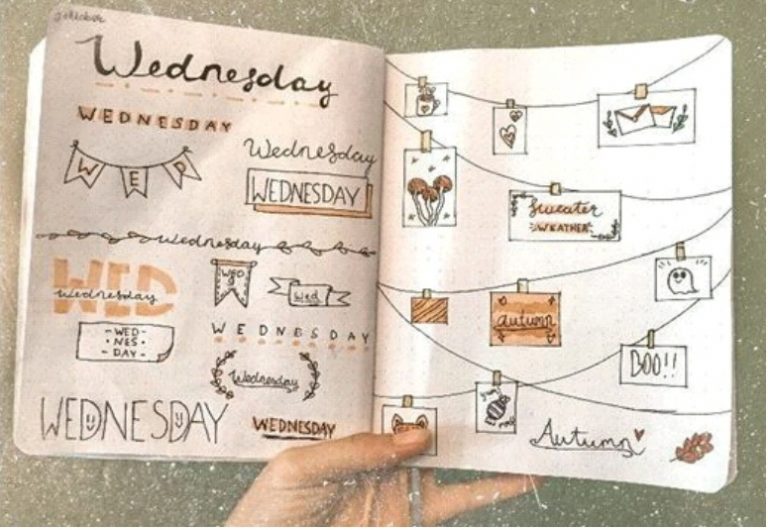 Wednesday
WEDNESDAY
WED
Wednesday
WEDNESDAY
Wednesday
WED
Wednesday
WED
Wed
-WED-
•NES•
-DAY-
WEDNESDAY
Wednesday
WEDNESDAY
WEDNESDAY
Sweater
WEATHER
autumn
BOO!!
Autumn